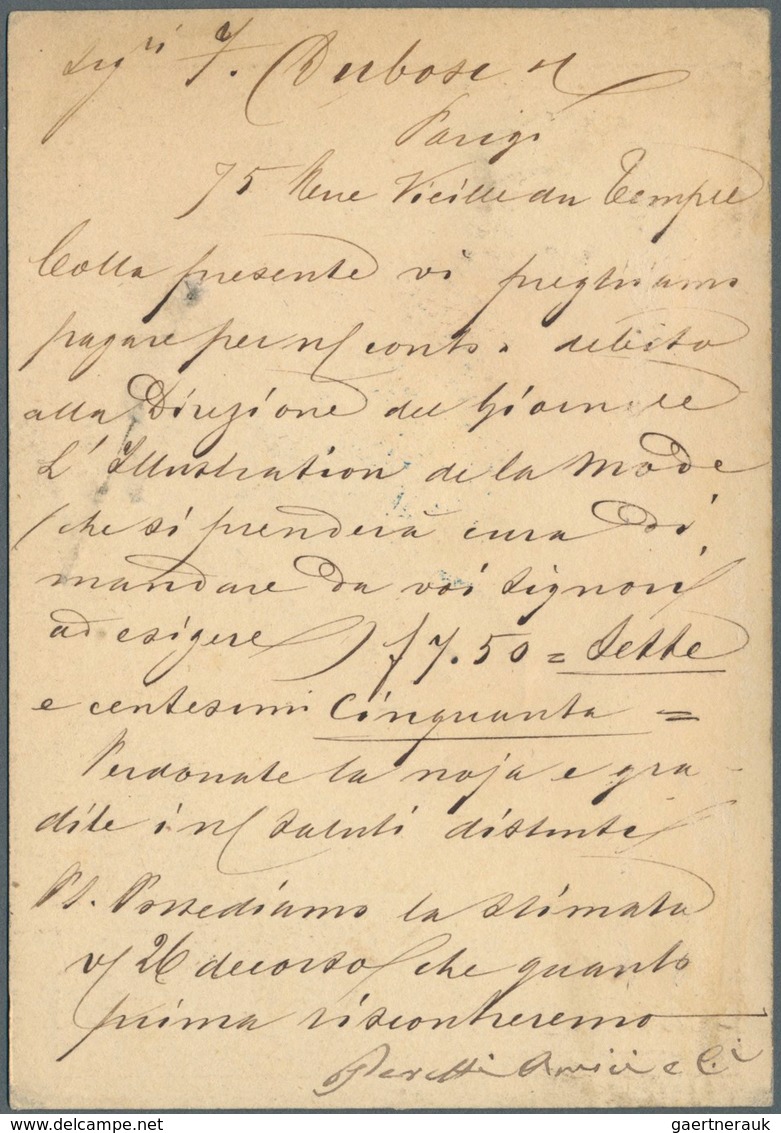 Sigri F. Dubosc &
Parigi
75 Rue Vieille du Temple
Colla presente vi preghiamo
pagare per n/ conto e debito
alla Direzione del Giornale
L'Illustration de la Mode
(che si prenderà cura di
mandare da voi Signori
ad esigere) f 7.50 = Sette
e centesimi Cinquanta =
Perdonate la noja e gra-
dite i n/ saluti distinti
PS. Possediamo la stimata
v/ 26 decorso che quanto
prima riscontreremo
Amici e Ci
gaertnerauk